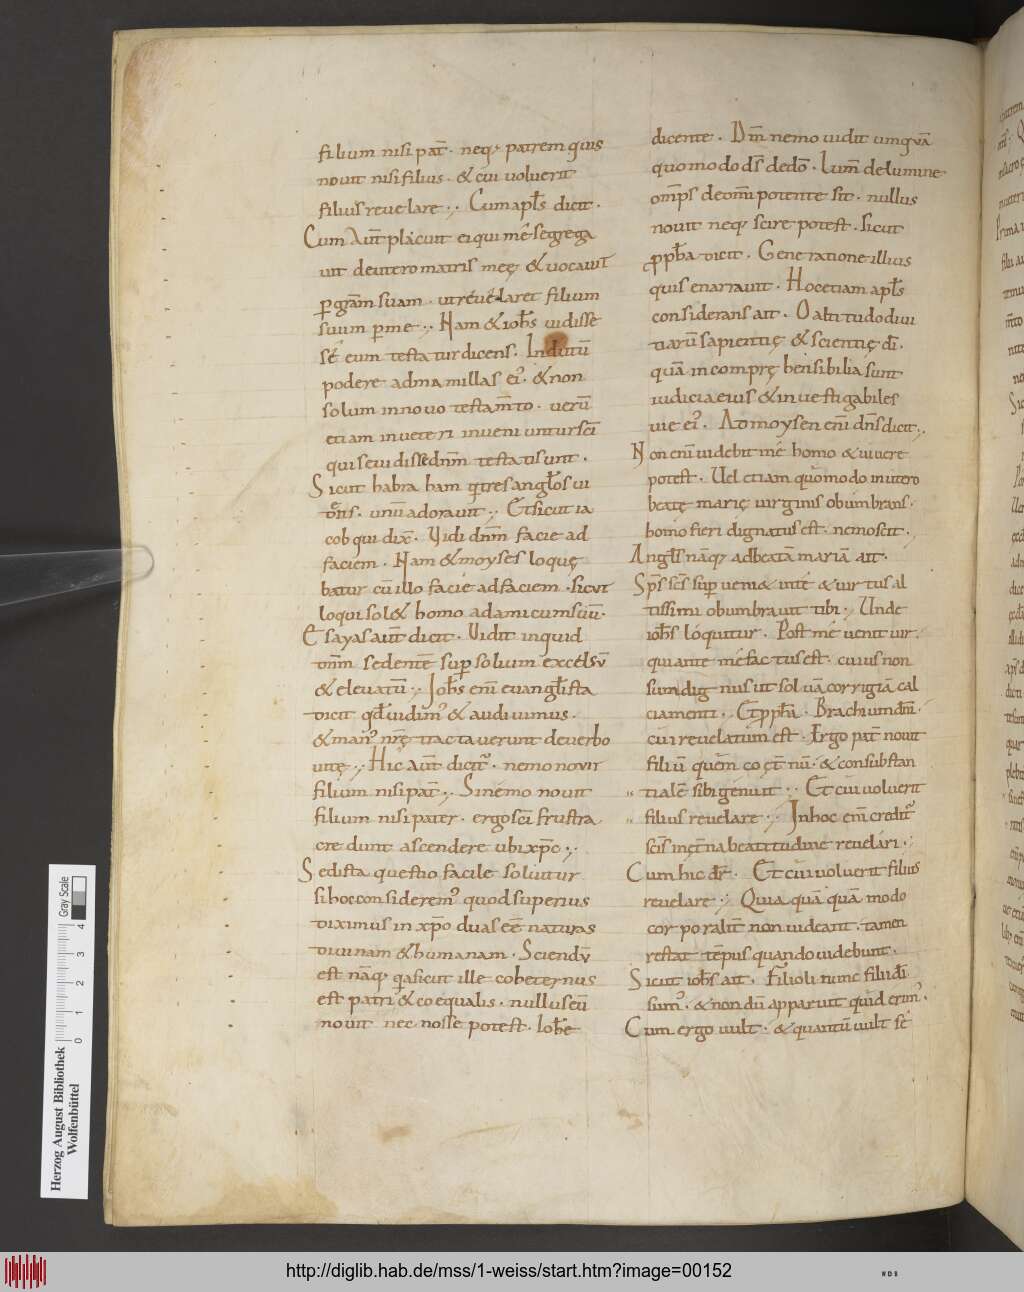 filium nisi pat̄. neq; patrem quis
nouit nisi filius. & cui uoluerit
filius reuelare·,· Cum apl̄s dicit.
Cum aut̄ placuit ei qui me segrega
uit de utero matris meę & uocauit
ꝑ grām suam. ut reuelaret filium
suum ꝑ me·,· Nam & ioh̄s uidisse
se eum testatur dicens. Indutū
podere ad mamillas ei'. & non
solum in nouo testam̄to. uerū
etiam in ueteri inueniuntur sc̄i
qui se uidisse dnm̄ testati sunt.
Sicut habraham q tres angl̄os ui
dens. unū adorauit·,· Et sicut ia
cob qui dix̄. Uidi dnm̄ facie ad
faciem. Nam & moyses loquę
batur cū illo facie ad faciem. sicut
loqui sol& homo ad amicum suū.
Esayas aut̄ dicit. Uidit inquid
dnm̄ sedentē suꝑ solium excelsū
& eleuatū·,· Ioh̄s enī euangl̄ista
dicit qđ uidim' & audiuimus.
& man' nr̄ę tractauerunt de uerbo
uitę·,· Hic aut̄ dicit'. nemo nouit
filium nisi pat̄·,· Si nemo nouit
filium nisi pater. ergo sc̄i frustra
credunt ascendere ubi xp̄c·,·
Sed ista questio facile soluitur
si hoc considerem' quod superius
diximus in xp̄o duas eē naturas
diuinam & humanam. Sciendū
est nāq; q̄a sicut ille coheternus
est patri & coequalis. nullus eū
nouit nec nosse potest. Ioh̄e
dicente. Dm̄ nemo uidit umquā
quomodo ds̄ de do. Lum̄ de lumine
om̄ps de omī potente sit. nullus
nouit neq; scire potest. sicut
ꝓph̄a dicit. Generatione illius
quis enarrauit. Hoc etiam apl̄s
considerans ait. O altitudo diui
tiarū sapientię & scientię dī.
quā incomprę hensibilia sunt
iudicia eius & inuestigabiles
uie ei'. Ad moysen enī dn̄s dicit·,·
Non enī uidebit me homo & uiuere
potest. Uel etiam quomodo in utero
beatę marię uirginis obumbrans.
homo fieri dignatus est. nemo scit.
Angl̄s nāq; ad beatā mariā ait.
Sp̄s sc̄s suꝑueni& in te & uirtus al
tissimi obumbrauit tibi·,· Unde
ioh̄s loquitur. Post me uenit uir.
qui ante me factus est. cuius non
sum dignus ut soluā corrigiā cal
ciamenti. Et ꝓph̄a. Brachium dn̄i.
cui reuelatum est. Ergo pat̄ nouit
filiū quem coęt̄nū. & consubstan
tialē sibi genuit·,· Et cui uoluerit
filius reuelare·,· In hoc enī credit'
sc̄is in ęt̄na beatitudine reuelari.
Cum hic dr̄. Et cui uoluerit filius
reuelare·,· Quia quā quā modo
corporalit̄ non uideant. tamen
restat tēpus quando uidebunt.
Sicut ioh̄s ait. Filioli nunc filii dī
sum'. & non dū apparuit quid erim'.
Cum ergo uult. & quantū uult se
Herzog August Bibliothek
Wolfenbüttel
Gray Scale
0 1 2 3 4
http://diglib.hab.de/mss/1-weiss/start.htm?image=00152